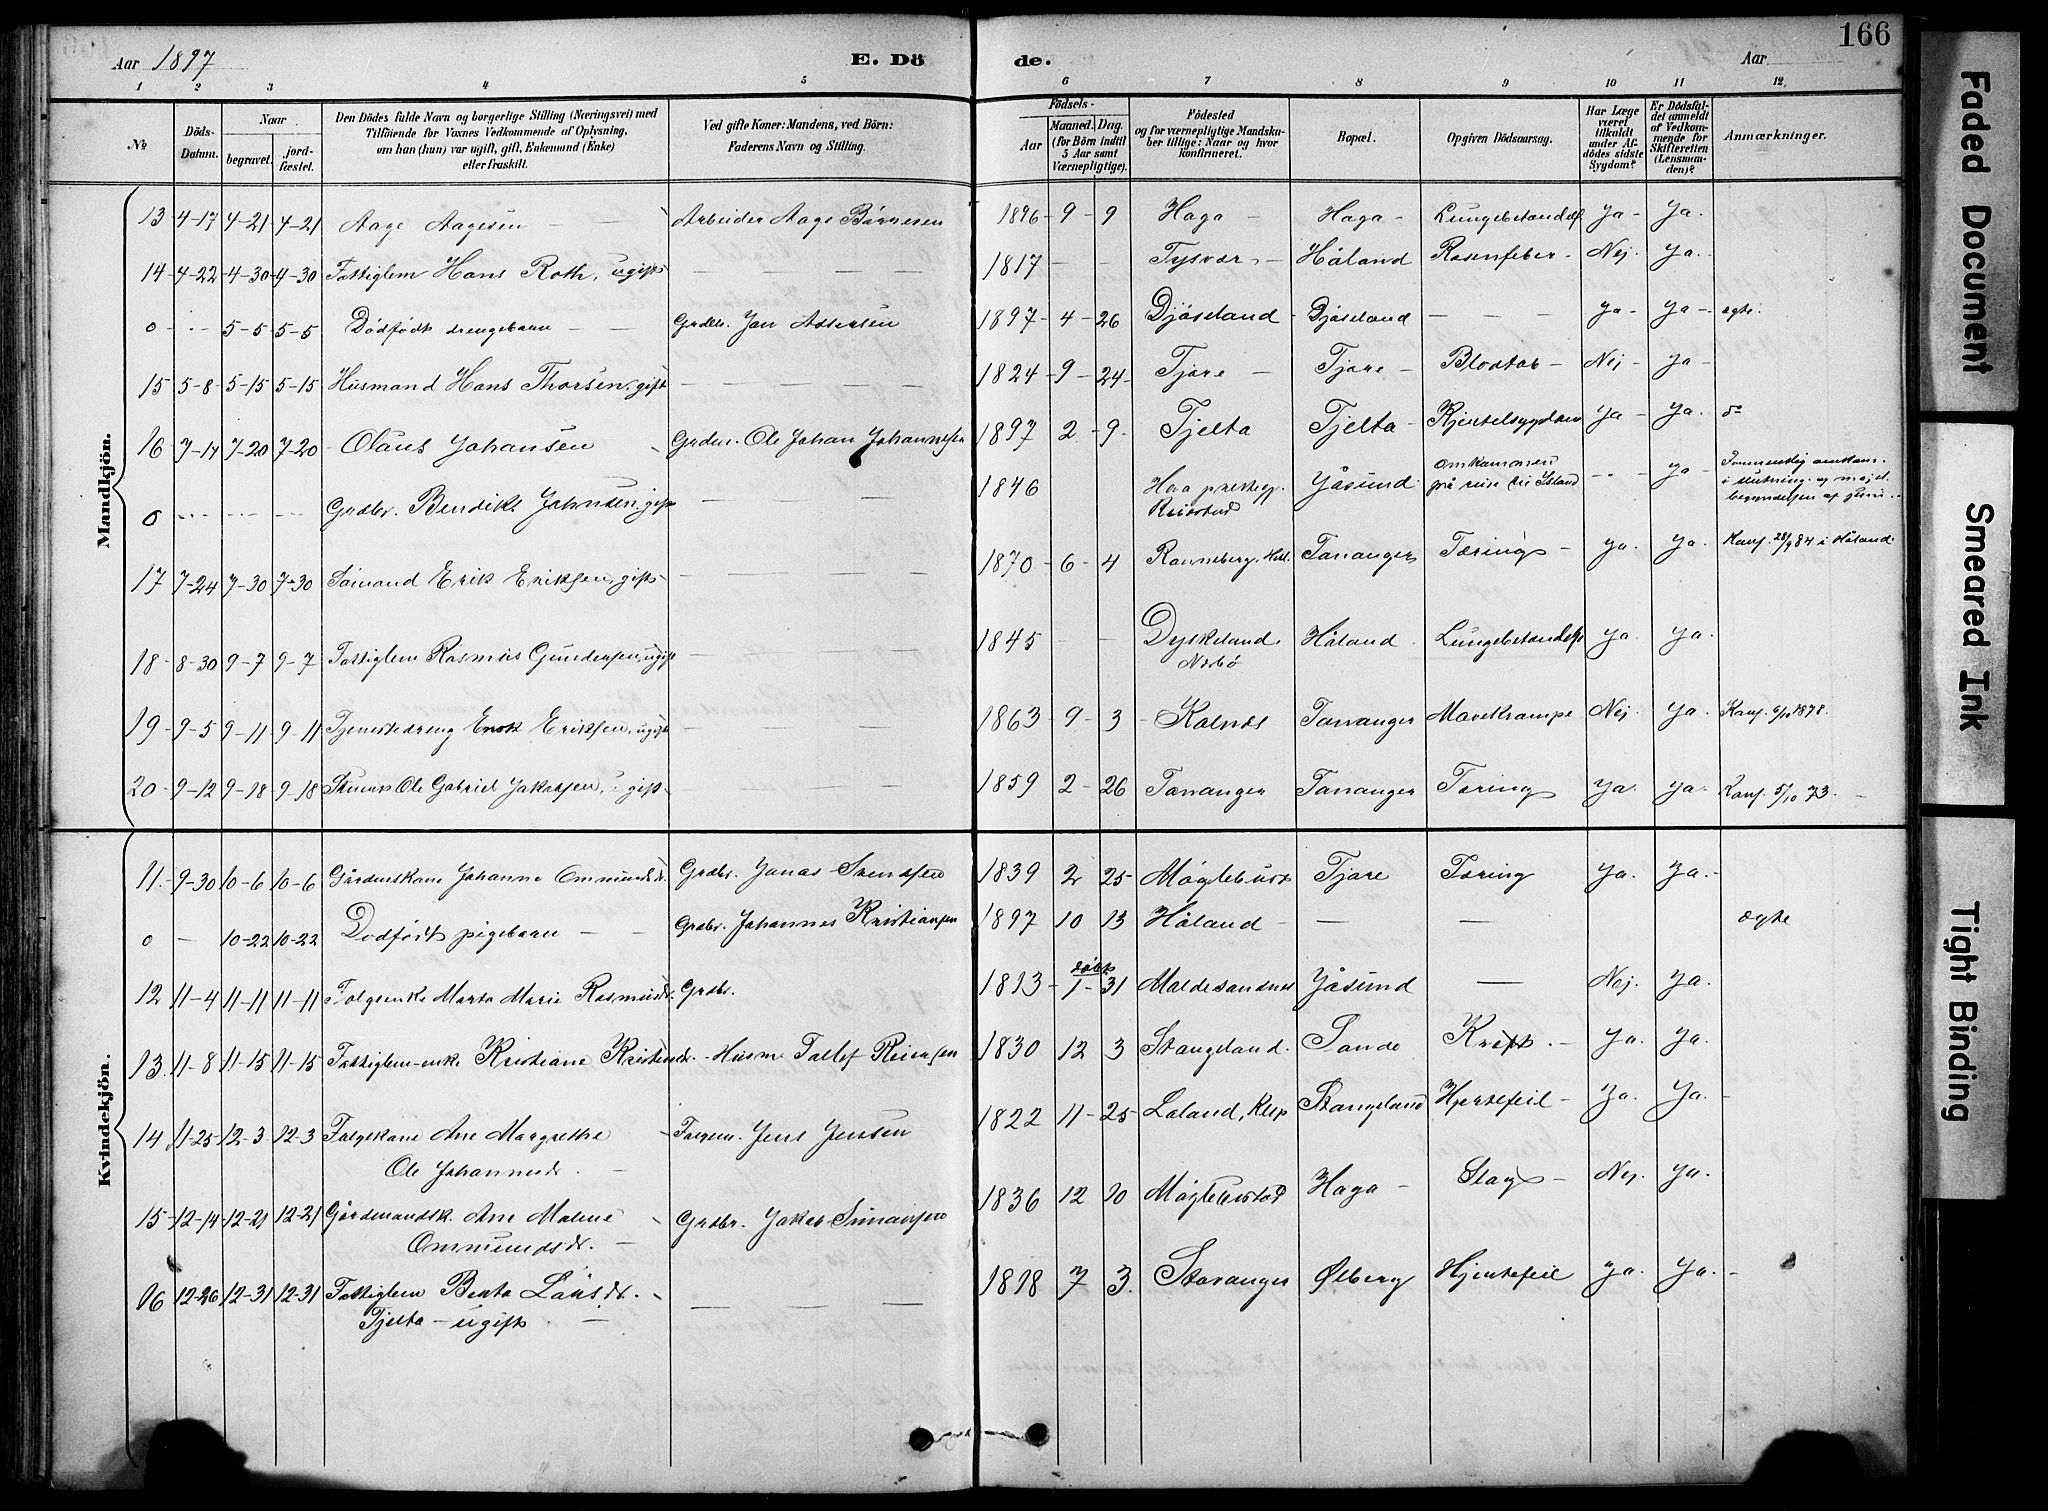 166
Aar 1897
E. Dö
de.
Aar
1 2 3 4 5 6 7 8 9 10 11 12
№
Döds-Datum.
Naar
begravet.
jordfæstet.
Den Dödes fulde Navn og borgerlige Stilling (Næringsvei) med
Tilföiende for Voxnes Vedkommende af Oplysning,
om han (hun) var ugift, gift, Enkemand (Enke)
eller fraskilt.
Ved gifte Koner: Mandens, ved Börn:
Faderens Navn og Stilling.
Födsels-
Aar
Maaned. Dag.
(for Börn indtil
5 Aar samt
Værnepligtige).
Födested
og for værnepligtige Mandska-
ber tillige: Naar og hvor
konfirmeret.
Bopæl.
Opgiven Dödsaarsag.
Har Læge
været
tilkaldt
under Af-
dödes sidste
Sygdom?
Er Dödsfal-
det anmeldt
af Vedkom-
mende for
Skifteretten
(Lensman-
den)?
Anmærkninger.
Mandkjön.
13 4-17 4-21 4-21 Aage Aagesen Arbeider Aage Börnesen 1896-9-9 Haga Haga Lungebetændelse Ja Ja
14 4-22 4-30 4-30 Fattiglem Hans Roth, ugift 1817 Tysvær Håland Rosenfeber Nej Ja
0 5-5 5-5 Dödfödt drengebarn Grdbr. Jan Assersen 1897-4-26 Djøseland Djøseland Ja Ja ægte
15 5-8 5-15 5-15 Husmand Hans Thorsen, gift 1824-9-24 Tjore Tjore Blodtab Nej Ja
16 7-14 7-20 7-20 Olaus Johansen Grdbr. Ole Johan Johannessen 1897 2-9 Tjelta Tjelta Kjertelsygdom Ja Ja do
0 Grdbr. Bendikt Johnsen, gift 1846 Hora prestegj. Jåsund omkommen
på reise til Island Ja
17 7-24 7-30 7-30 Sömand Erik Eriksen, gift 1870-6-4 Ronneberg, Hål. Tananger Tæring Ja Ja Konf. 28/9 84 i Håland
18 8-30 9-7 9-7 Fattiglem Rasmus Gundersen, ugift 1845 Dyskeland
Nærbö Håland Lungebetændelse Ja Ja
19 9-5 9-11 9-11 Tjenestedreng Enok Eriksen, ugift 1863-9-3 Kolnes Tananger Mavekrampe Nej Ja Konf. 6/10 1878.
20 9-12 9-18 9-18 Ole Gabriel Jakobsen, ugift 1859 2-26 Tananger Tananger Tæring Ja Ja Konf. 5/10 73.
Kvindekjön.
11 9-30 10-6 10-6 Gårdmskone Johanne Ommundsdr. Grdbr. Jonas Svendsen 1839 2 25 Møglebust Tjore Tæring Ja Ja
0 10-22 10-22 Dödfödt pigebarn Grdbr. Johannes Kristiansen 1897 10 13 Håland ægte
12 11-4 11-11 11-11 Folgeenke Marta Marie Rasmusdr. Grdbr. 1813 döbt 1-31 Maldesandnes Jåsund Nej. Ja
13 11-8 11-15 11-15 Fattiglem-enke Kristiane Kristendr. Husm Tollef Reiersen 1830 12 3 Stangeland Sande Kræft Ja Ja
14 11-25 12-3 12-3 Folgekone Ane Margrethe
Ole Johannesdr. Folgem. Jens Jensen 1822 11-25 Laland, Klep Stangeland Hjertefeil Ja Ja
15 12-14 12-21 12-21 Gårdmandsk. Ane Malene
Ommundsdr. Grdbr. Jakob Simonsen 1836 12 20 Møglebustad Haga Slag Nej Ja
16 12-26 12-31 12-31 Fattiglem Berta Larsdr.
Tjelta ugift 1818 7 3 Stavanger Ølberg Hjertefeil Ja Ja
Faded Document
Smeared Ink
Tight Binding